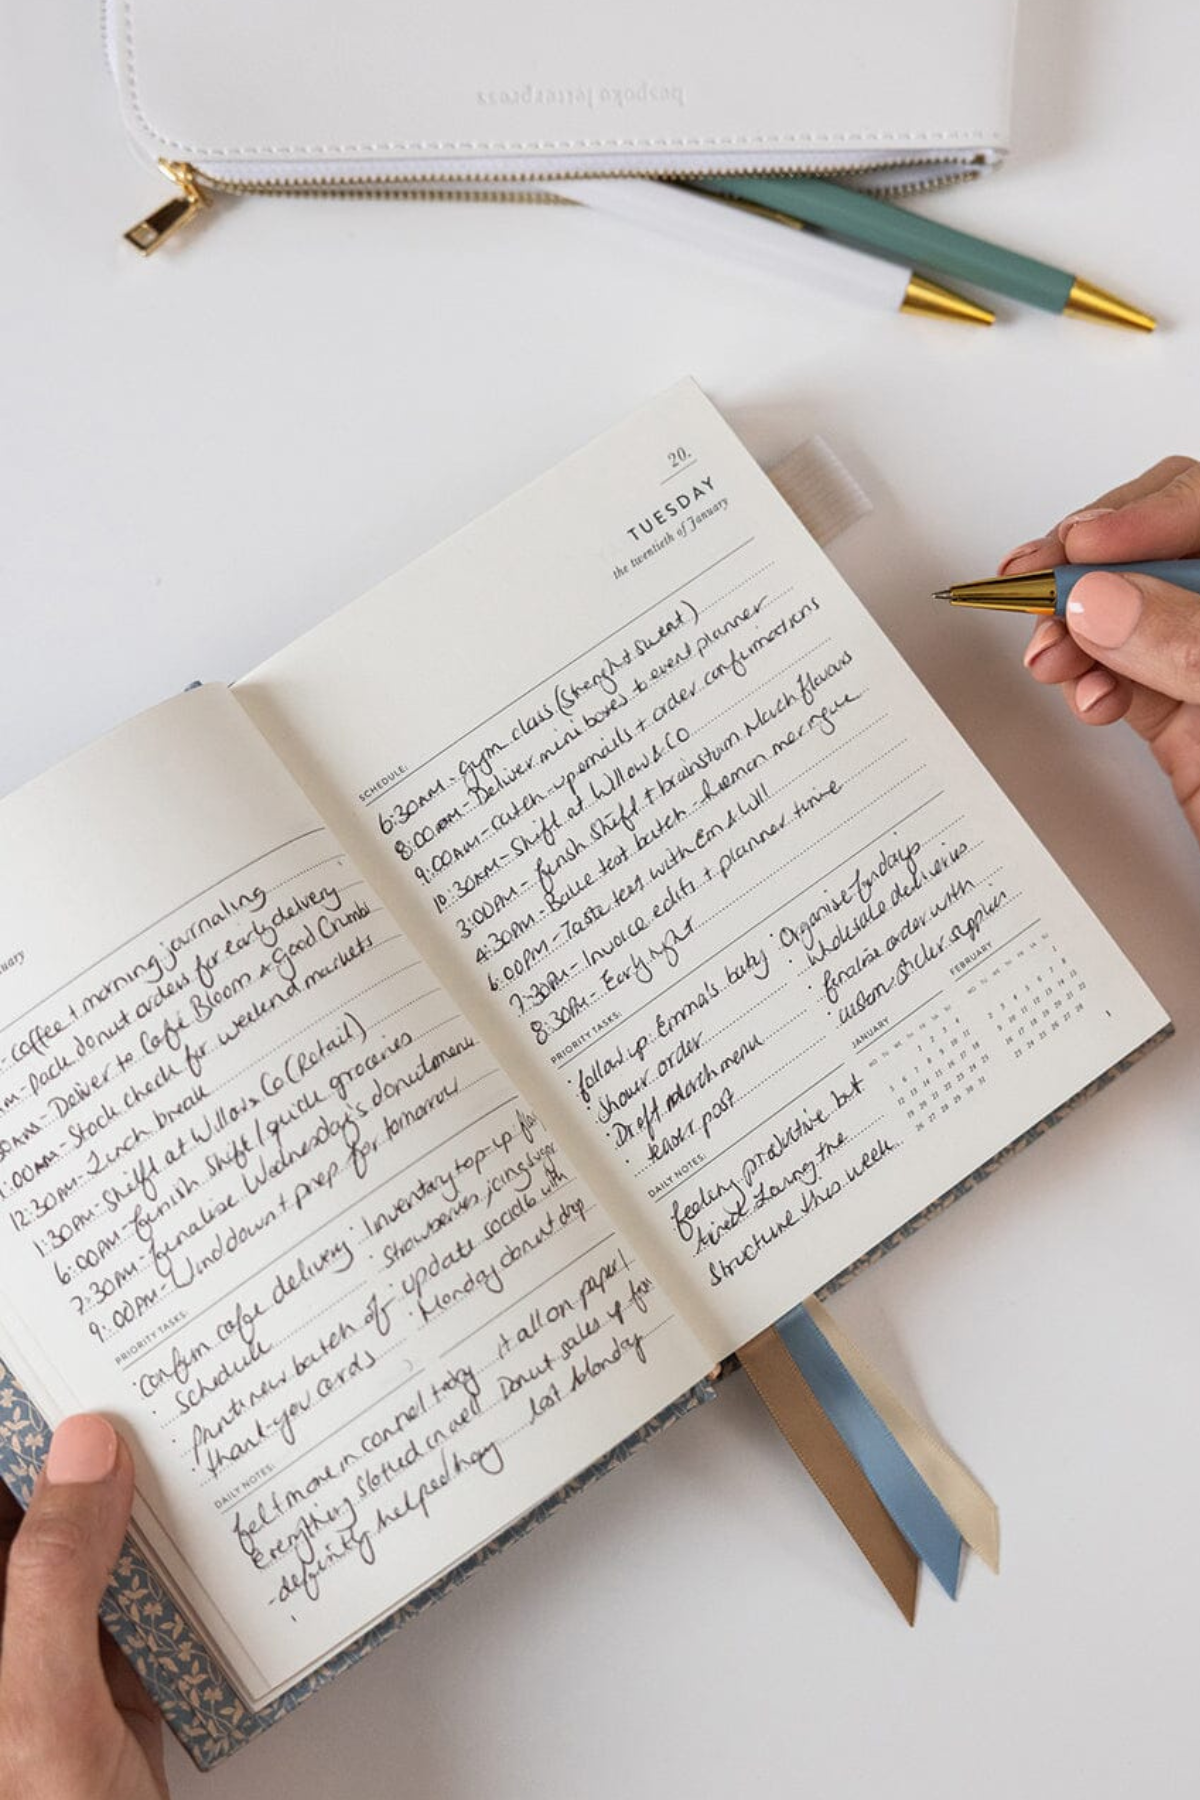 bespoke letterpress
nuary
- coffee + morning journaling
AM - Pack donut orders for early delivery
AM - Deliver to Café Bloom & Good Crumb
:00AM - Stock check for weekend markets
12:30AM - Lunch break
1:30PM - Shift at Willow & Co (Retail)
6:00PM - finish shift / quick groceries
7:30PM - finalise Wednesday's donut menu
9:00PM - Wind down + prep for tomorrow
PRIORITY TASKS:
· confirm cafe delivery
· Schedule
· Print new batch of
· thank-you cards
· Inventory top-up:
· Strawberries, icing sugar
· update socials with
· Monday donut drop
DAILY NOTES:
felt more in control today
Everything slotted in well
- definitly helped having
it all on paper!
Donut sales up from
last Monday
20.
TUESDAY
the twentieth of January
SCHEDULE:
6:30AM - Gym class (Strenght & Sweat)
8:00AM - Deliver mini boxes to event planner
9:00AM - catch up emails + order confirmations
10:30AM - Shift at Willow & CO
3:00PM - finish shift + brainstorm March flavours
4:30PM - Bake test batch - Lemon meringue
6:00PM - Taste test with Em & Will
7:30PM - Invoice edits + planner time
8:30PM - Early night
PRIORITY TASKS:
· follow up: Emma's baby
· Shower order
· Draft march menu
· teaser post
· Organise fundays
· wholesale deliveries
· finalise order with
· custom sticker supplier
DAILY NOTES:
feeling productive but
tired. Loving the
Structure this week
JANUARY
1 2 3 4
5 6 7 8 9 10 11
12 13 14 15 16 17 18
19 20 21 22 23 24 25
26 27 28 29 30 31
FEBRUARY
1
2 3 4 5 6 7 8
9 10 11 12 13 14 15
16 17 18 19 20 21 22
23 24 25 26 27 28